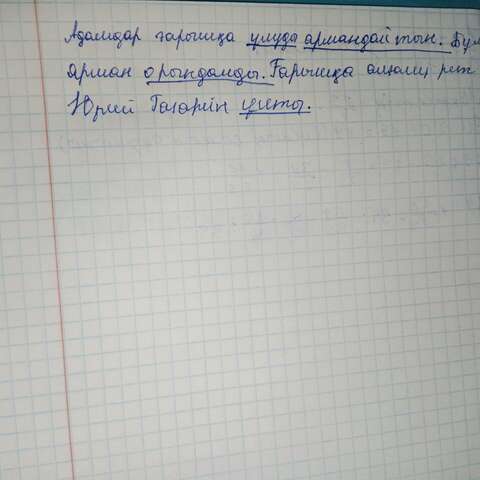 Адамдар ғарышқа ұшуды армандайтын. Бұл
арман орындалды. Ғарышқа алғаш рет
Юрий Гагарин ұшты.